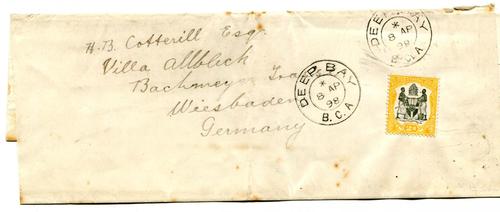 H.B. Cotterill Esq.
Villa Allblick
Bachmeyer
Wiesbaden
Germany
DEEP BAY
*
8 AP
98
B.C.A
DEEP BAY
*
8 AP
98
B.C.A